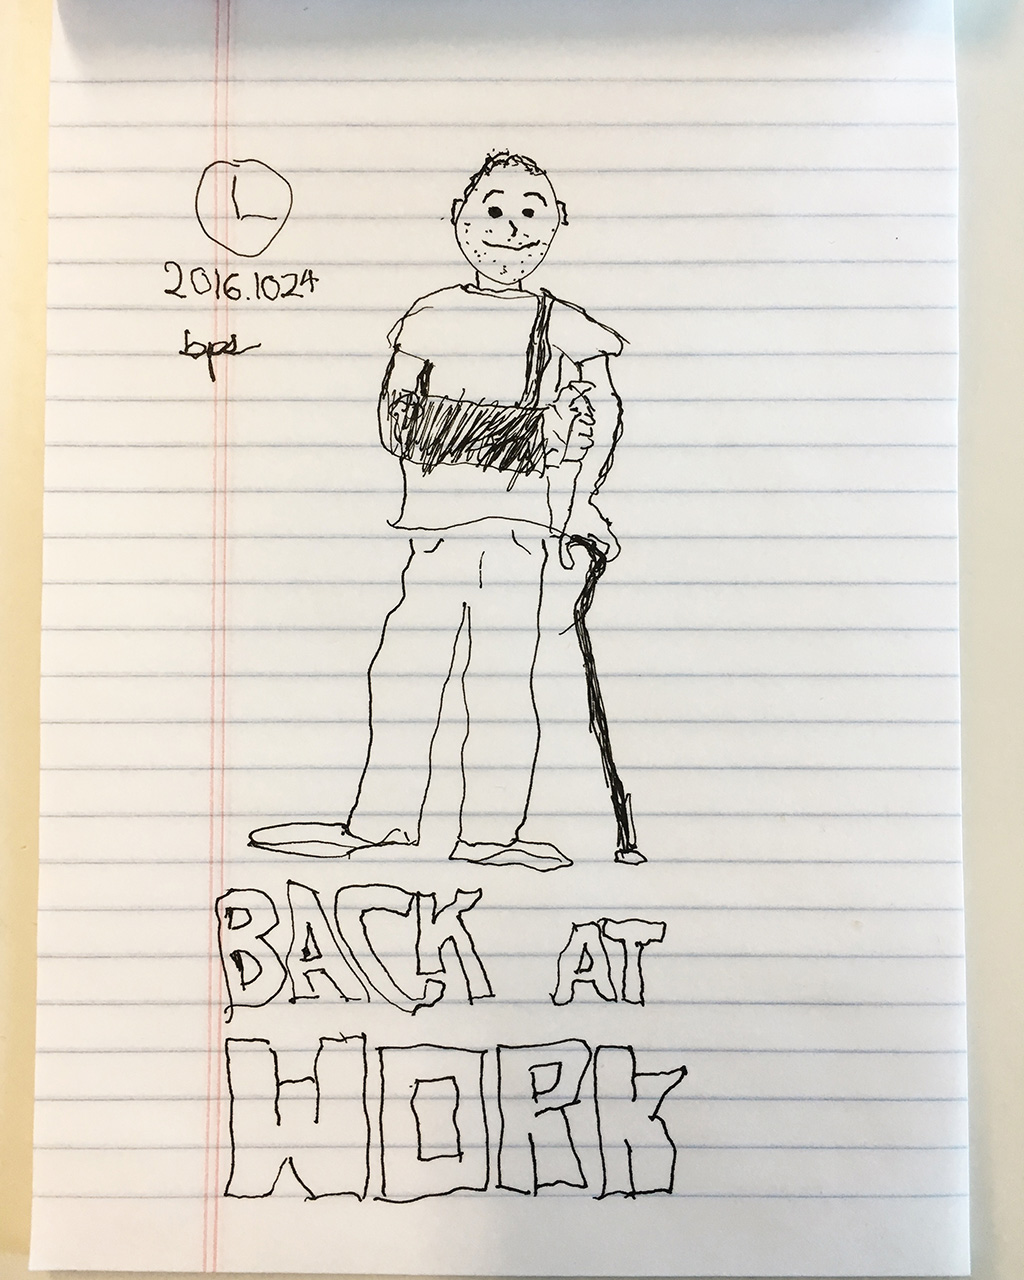 2016.1024
bps
BACK AT
WORK